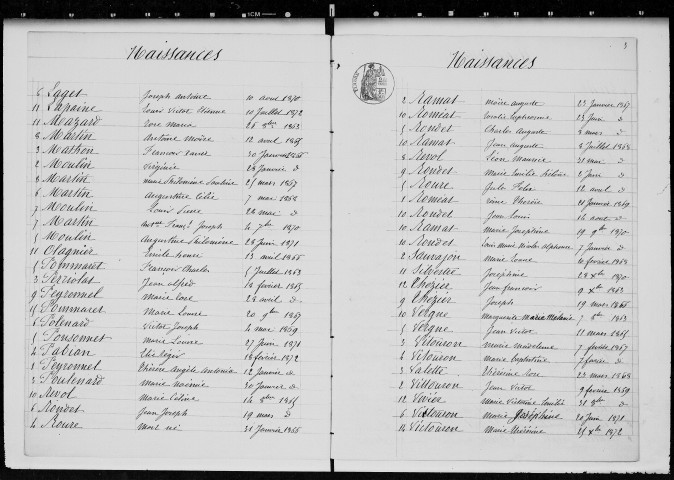 1CM
Naissances
6 Joseph Antoine 10 aout 1870
11 Lapaine Louis Victor Etienne 10 Juillet 1872
11 Mazard Rose Marie 1863
8 Martin Antoine Moïse 12 avril 1865
3 Mathon Francois Xavier 30 Janvier 1866
2 Moulin Virginie 28 Janvier d
8 Martin Marie Philomène 25 mars 1867
6 Martin Augustine 7 mai 1868
7 Moulin Louis 28 mai d
7 Martin Joseph 4 7bre 1870
5 Moulin Augustine Philomène 28 Juin 1871
11 Olagnier Emile 13 avril 1866
5 Pommaret Francois Charles 5 Juillet 1863
3 Jean Alfred 18 fevrier 1865
9 Peyronnel Marie Rose 28 avril d
15 Pommaret Marie Louise 20 9bre 1867
6 Polenard Victor Joseph 4 mai 1869
5 Ponsonnet Marie Louise 27 Juin 1871
4 Pabion 18 fevrier 1872
1 Peyronnel Thérèse Angèle Antonia 12 Janvier d
3 Poulenard Marie Noémie 30 Janvier d
10 Revol Marie Céline 14 8bre 1865
6 Rondet Jean Joseph 19 mars d
4 Roure Mort né 31 Janvier 1866
3
Naissances
2 Ramat Moïse Auguste 23 Janvier 1867
10 Roméat 23 Juin d
5 Rondet Charles Auguste 8 mars d
10 Ramat Jean Auguste 8 Juillet 1868
8 Revol Léon Maurice 31 mai d
9 Rondet Marie Emilie 2 Juin d
5 Roure Jules 12 avril d
1 Roméat Thérèse 21 Janvier 1869
10 Rondet Jean Louis 16 aout d
10 Ramat Marie Joséphine 19 9bre 1870
10 Rondet Louis Marie Alphonse 7 Janvier d
2 Sauvajon Marie Louise 10 fevrier 1863
11 Silvestre Joséphine 28 Xbre 1870
12 Thézier Jean Francois 9 Xbre 1863
9 Thézier Joseph 19 mars 1866
10 Vergne Marguerite Marie Melanie 7 8bre 1863
5 Vergne Jean Victor 11 mars 1865
3 Vitouron Marie Madeleine 7 fevrier 1867
4 Vitouron Marie 7 fevrier d
3 Valette Rose 23 mars 1868
2 Villouron Jean Victor 9 fevrier 1869
12 Vivier Marie Victorine 31 8bre d
6 Vitouron Marie Joséphine 20 Juin 1871
14 Victouron Marie 25 Xbre 1872